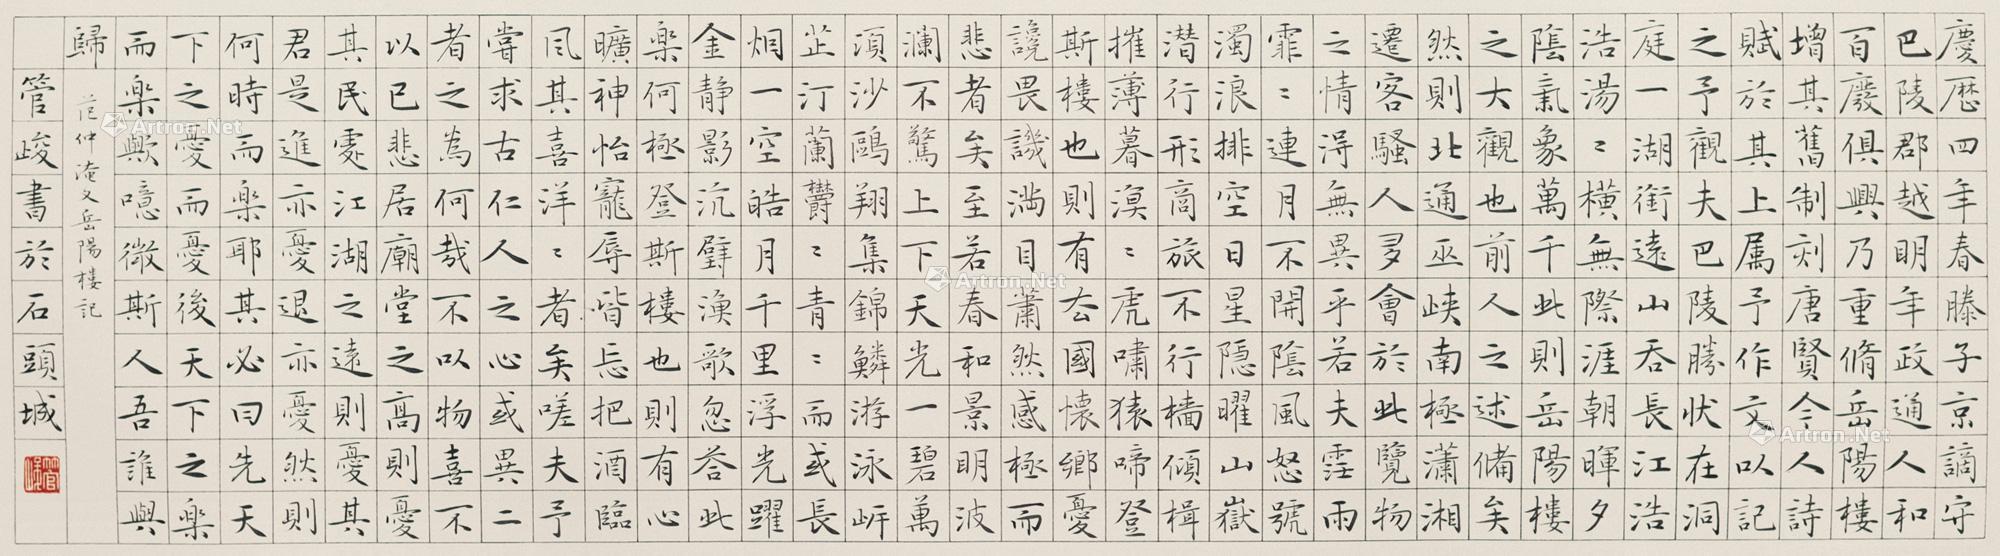 慶歷四年春滕子京謫守
巴陵郡越明年政通人和
百廢俱興乃重脩岳陽樓
增其舊制刻唐賢今人詩
賦於其上属予作文以記
之予觀夫巴陵勝狀在洞
庭一湖銜遠山吞長江浩
浩湯〻橫無際涯朝暉夕
陰氣象萬千此則岳陽樓
之大觀也前人之述備矣
然則北通巫峽南極瀟湘
遷客騷人多會於此覽物
之情得無異乎若夫霪雨
霏〻連月不開陰風怒號
濁浪排空日星隱曜山嶽
潛行形商旅不行檣傾楫
摧薄暮溟〻虎嘯猿啼登
斯樓也則有去國懷鄉憂
讒畏譏滿目蕭然感極而
悲者矣至若春和景明波
瀾不驚上下天光一碧萬
頃沙鷗翔集錦鱗游泳岍
芷汀蘭鬱〻青〻而或長
烟一空皓月千里浮光躍
金靜影沉璧漁歌忽荅此
樂何極登斯樓也則有心
曠神怡寵辱皆忘把酒臨
風其喜洋〻者矣嗟夫予
嘗求古仁人之心或異二
者之為何哉不以物喜不
以已悲居廟堂之高則憂
其民處江湖之遠則憂其
君是進亦憂退亦憂然則
何時而樂耶其必曰先天
下之憂而憂後天下之樂
而樂歟噫微斯人吾誰與
歸 范仲淹文岳陽樓記
管峻書於石頭城
管峻
Artron.Net
Artron.Net
Artron.Net
Artron.Net
Artron.Net